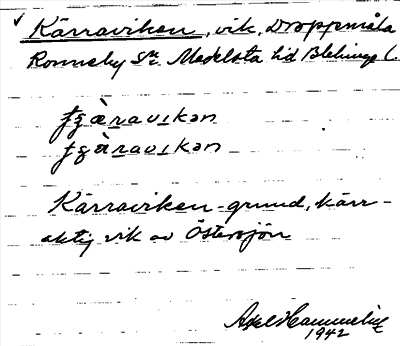 Kärraviken, vik, Droppemåla
Ronneby Sn. Medelsta hd Blekinge l.
ɟʂæ̀ravikən
ɟʂàravikən
Kärraviken - grund, kärr-
aktig vik av Östersjön
Axel Hammelin
1942